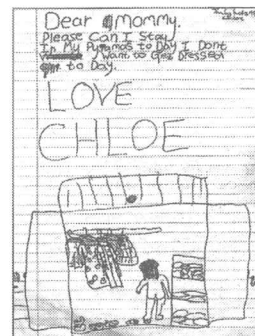 Dear Mommy.
Please Can I Stay
In My Pyjamas to Day I Dont
Want to Get Dressed
to Day.
LOVE
CHLOE